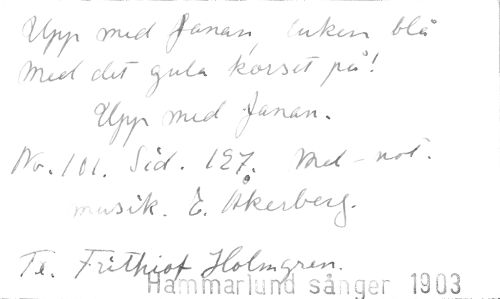 Upp med fanan, duken blå
Med det gula korset på!
Upp med fanan.
No. 101. Sid. 127. Med not.
musik. E. Åkerberg.
Te. Frithiof Holmgren.
Hammarlund sånger 1903